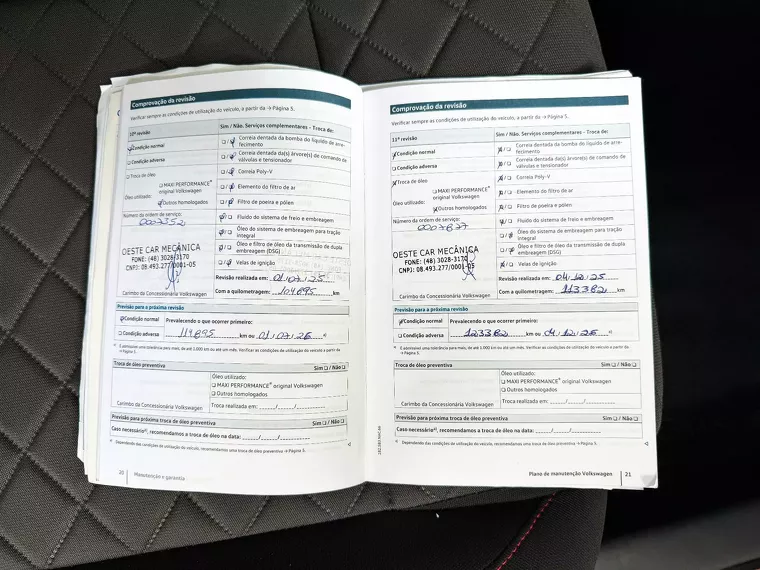 Comprovação da revisão
Verificar sempre as condições de utilização do veículo, a partir da → Página 5.
10ª revisão
Sim / Não. Serviços complementares - Troca de:
Condição normal
Correia dentada da bomba do líquido de arrefecimento
Condição adversa
Correia dentada da(s) árvore(s) de comando de válvulas e tensionador
Troca de óleo
Correia Poly-V
Óleo utilizado:
MAXI PERFORMANCE® original Volkswagen
Outros homologados
Elemento do filtro de ar
Filtro de poeira e pólen
Número da ordem de serviço:
Fluído do sistema de freio e embreagem
Óleo do sistema de embreagem para tração integral
Óleo e filtro de óleo da transmissão de dupla embreagem (DSG)
Velas de ignição
OESTE CAR MECÂNICA
FONE: (48) 3028-3170
CNPJ: 08.493.277/0001-05
Carimbo da Concessionária Volkswagen
Revisão realizada em: 01.07.25
Com a quilometragem: 104895 km
Previsão para a próxima revisão
Condição normal
Prevalecendo o que ocorrer primeiro:
Condição adversa
114895 km ou 01.07.26
a) É admissível uma tolerância para mais, de até 1.000 km ou até um mês. Verificar as condições de utilização do veículo a partir da → Página 5.
Troca de óleo preventiva
Sim / Não
Óleo utilizado:
MAXI PERFORMANCE® original Volkswagen
Outros homologados
Carimbo da Concessionária Volkswagen
Troca realizada em: ___/___/___
Previsão para próxima troca de óleo preventiva
Sim / Não
Caso necessário, recomendamos a troca de óleo na data: ___/___/___
a) Dependendo das condições de utilização do veículo, recomendamos uma troca de óleo preventiva → Página 5.
20 Manutenção e garantia
Comprovação da revisão
Verificar sempre as condições de utilização do veículo, a partir da → Página 5.
11ª revisão
Sim / Não. Serviços complementares - Troca de:
Condição normal
Correia dentada da bomba do líquido de arrefecimento
Condição adversa
Correia dentada da(s) árvore(s) de comando de válvulas e tensionador
Troca de óleo
Correia Poly-V
Óleo utilizado:
MAXI PERFORMANCE® original Volkswagen
Outros homologados
Elemento do filtro de ar
Filtro de poeira e pólen
Número da ordem de serviço:
0007827
Fluído do sistema de freio e embreagem
Óleo do sistema de embreagem para tração integral
Óleo e filtro de óleo da transmissão de dupla embreagem (DSG)
Velas de ignição
OESTE CAR MECÂNICA
FONE: (48) 3028-3170
CNPJ: 08.493.277/0001-05
Carimbo da Concessionária Volkswagen
Revisão realizada em: 04.12.25
Com a quilometragem: 113382 km
Previsão para a próxima revisão
Condição normal
Prevalecendo o que ocorrer primeiro:
Condição adversa
123382 km ou 04.12.26
a) É admissível uma tolerância para mais, de até 1.000 km ou até um mês. Verificar as condições de utilização do veículo a partir da → Página 5.
Troca de óleo preventiva
Sim / Não
Óleo utilizado:
MAXI PERFORMANCE® original Volkswagen
Outros homologados
Carimbo da Concessionária Volkswagen
Troca realizada em: ___/___/___
Previsão para próxima troca de óleo preventiva
Sim / Não
Caso necessário, recomendamos a troca de óleo na data: ___/___/___
a) Dependendo das condições de utilização do veículo, recomendamos uma troca de óleo preventiva → Página 5.
Plano de manutenção Volkswagen 21